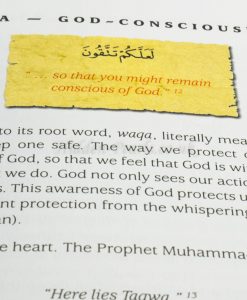 A — GOD-CONSCIOUS
لَعَلَّكُمْ تَتَّقُونَ
" ... so that you might remain
conscious of God." 12
to its root word, waqa, literally mea
ep one safe. The way we protect o
of God, so that we feel that God is wi
t we do. God not only sees our action
s. This awareness of God protects u
nt protection from the whispering
n).
e heart. The Prophet Muhamma
"Here lies Taqwa." 13